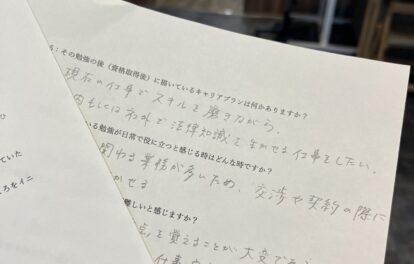 5：その勉強の後（資格取得後）に描いているキャリアプランは何かありますか？
現在の仕事でスキルを磨きながら、
内もしくは社外で法律知識を生かせる仕事をしたい。
いる勉強が日常で役に立つと感じる時はどんな時ですか？
関わる業務が多いため、交渉や契約の際に
かせる
難しいと感じますか？
を覚えることが大変であ
仕事
ていた
ころをイニ